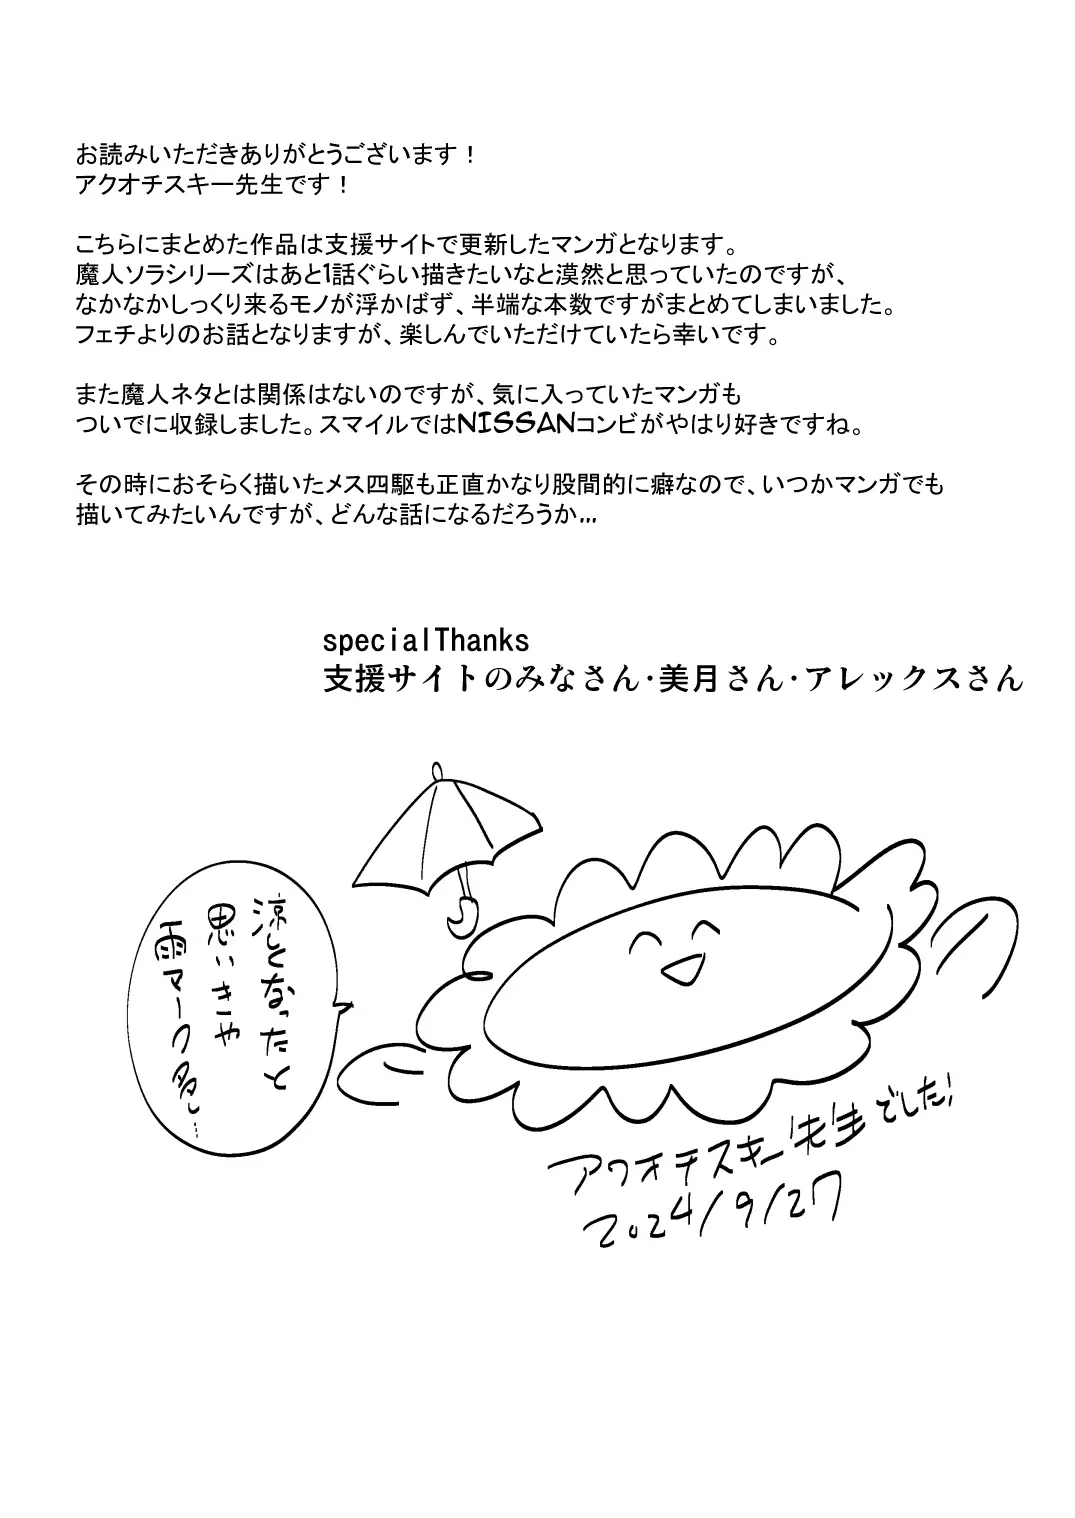 お読みいただきありがとうございます！
アクオチスキー先生です！
こちらにまとめた作品は支援サイトで更新したマンガとなります。
魔人ソラシリーズはあと1話ぐらい描きたいなと漠然と思っていたのですが、
なかなかしっくり来るモノが浮かばず、半端な本数ですがまとめてしまいました。
フェチよりのお話となりますが、楽しんでいただけていたら幸いです。
また魔人ネタとは関係はないのですが、気に入っていたマンガも
ついでに収録しました。スマイルではNISSANコンビがやはり好きですね。
その時におそらく描いたメス四駆も正直かなり股間的に癖なので、いつかマンガでも
描いてみたいんですが、どんな話になるだろうか…
specialThanks
支援サイトのみなさん･美月さん･アレックスさん
涼しくなったと
思いきや
雨マーク多し…
アクオチスキー先生でした!
2024/9/27